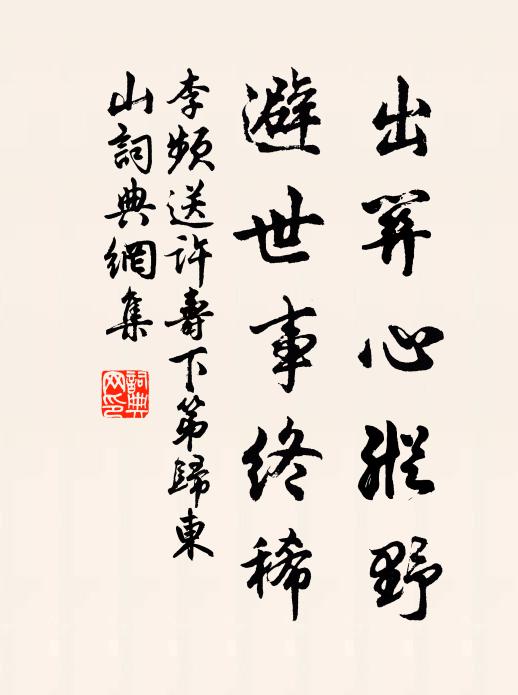 出筭心縱野
避世事終稀
李頻送許壽下第歸東
山詞典網集
詞典
网印